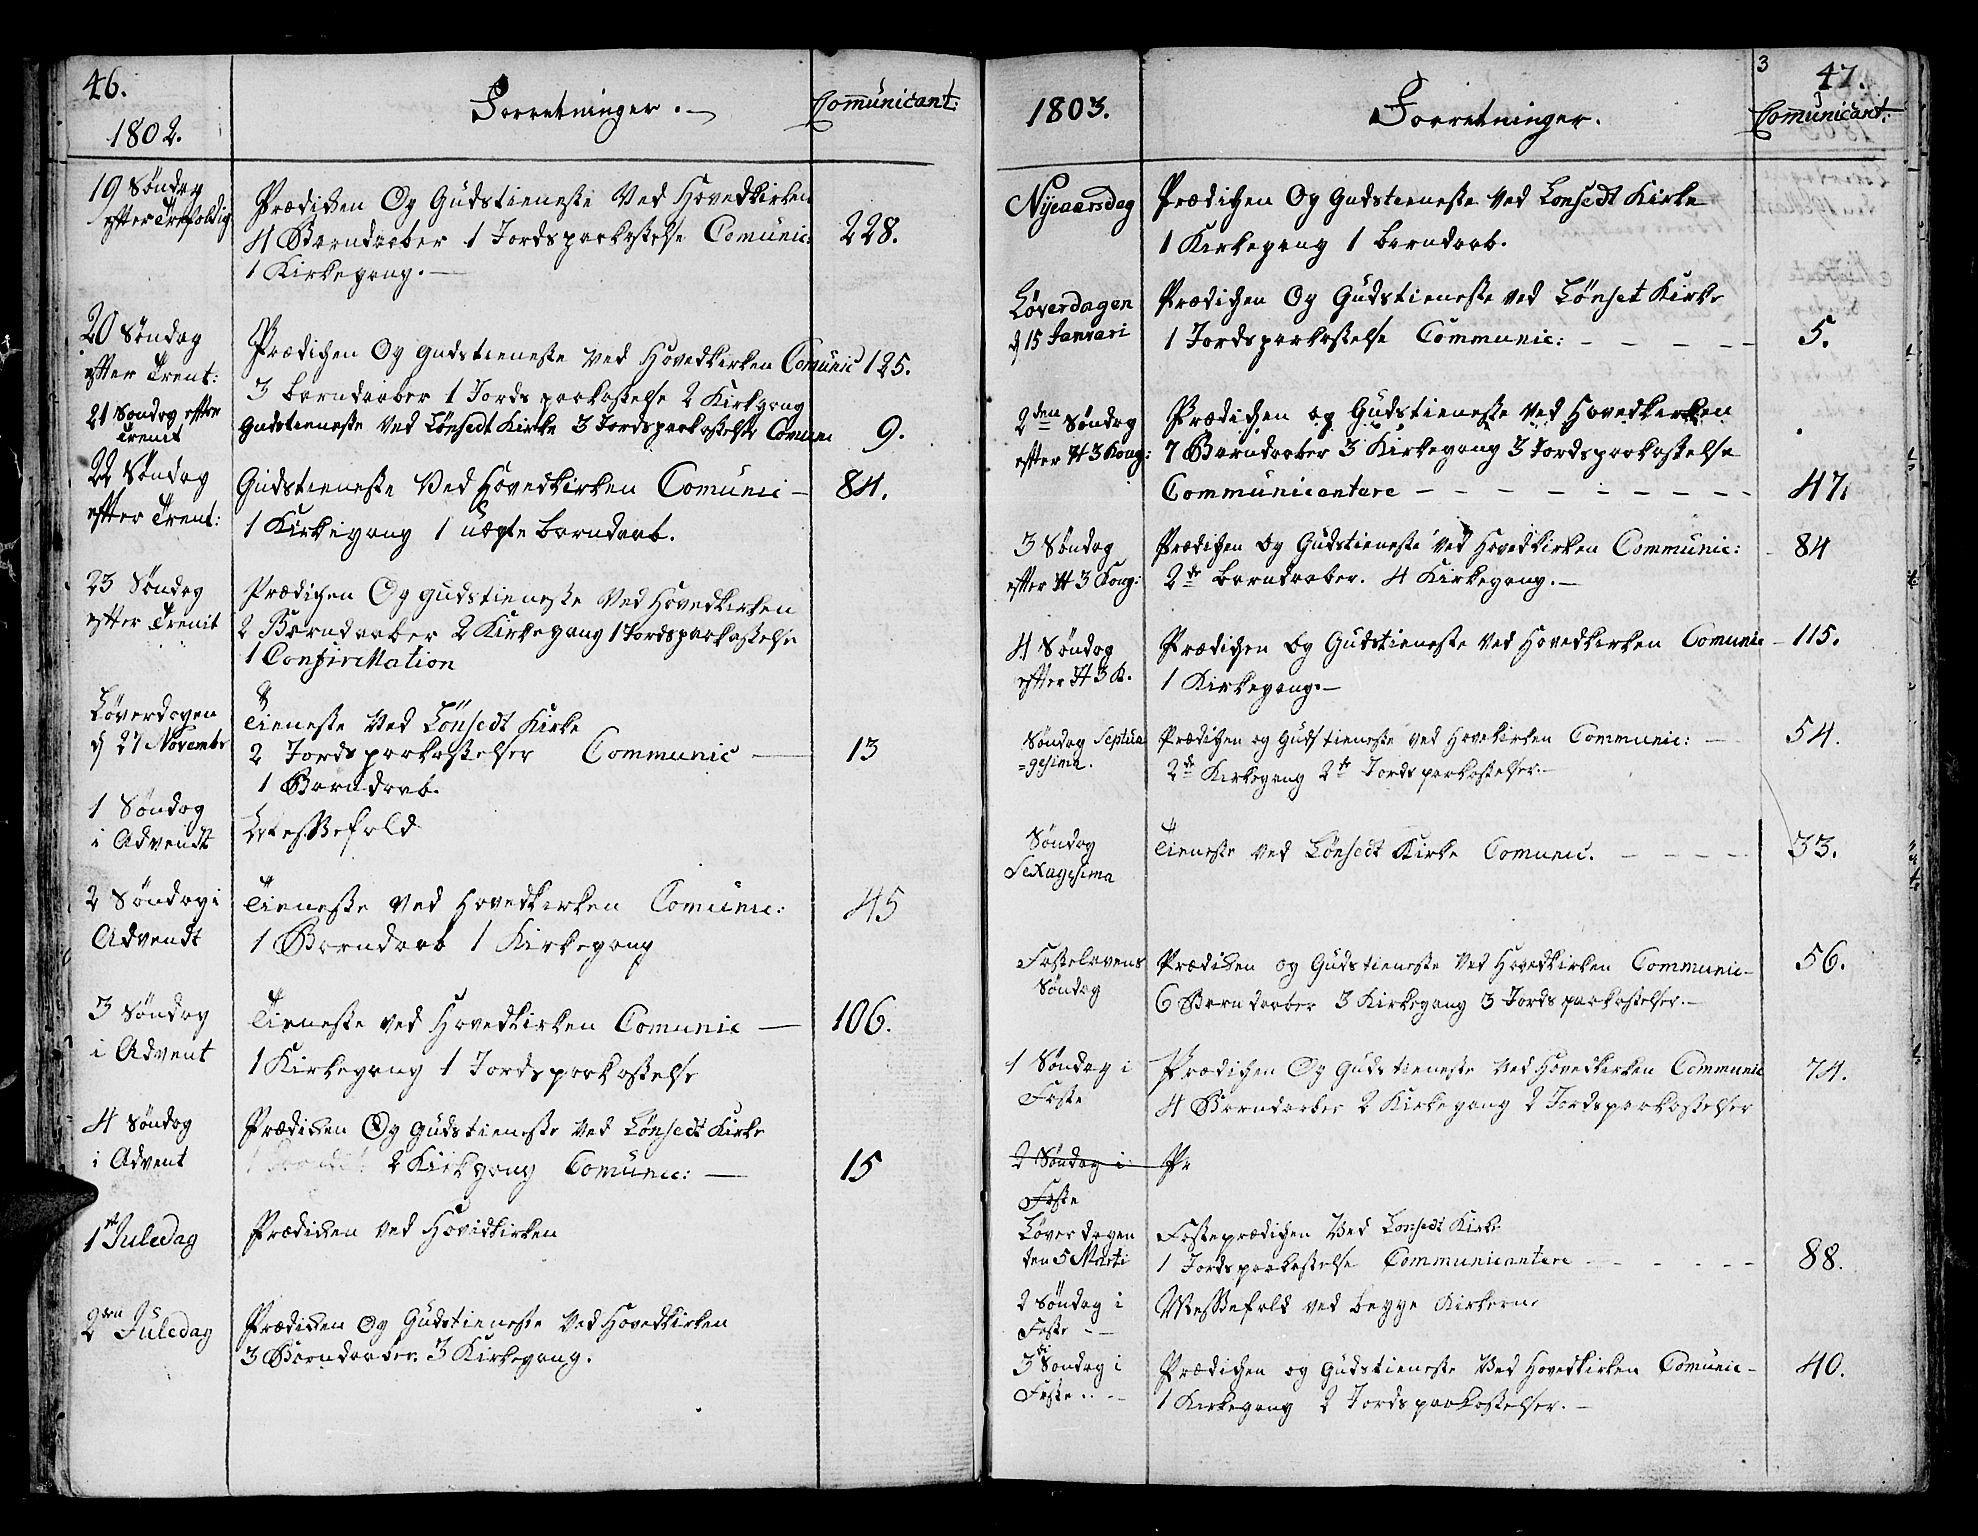 46.
1802.
Forretninger.
Comunicant:
19 Søndag
efter Trefoldig
Prædiken Og Gudstieneste Ved Hovedkirken
4 Barndaaber 1 Jordspaakastelse Comunic: 228.
1 Kirkegang.
20 Søndag
efter Trent:
Prædichen Og Gudstieneste ved Hovedkirken Comunic 125.
3 barndaaber 1 Jordspaakastelse 2 Kirkgang
21 Søndag efter
Trenit
Gudstieneste ved Lønsedt Kirke 3 Jordspaakastelse Comuni 9.
22 Søndag
efter Trent:
Gudstieneste Ved Hovedkirken Comunic - 84.
1 Kirkegang 1 uægte barndaab.
23 Søndag
efter Trenit
Prædichen Og gudstieneste Ved Hovedkirken
2 Barndaaber 2 Kirkegang 1 Jordspaakastelse
1 Confirmation
Løverdagen
d 27 Novembr
Tieneste Ved Lønsedt Kirke
2 Jordspaakastelser Communic — 13
1 Barndaab.
1 Søndag
i Advendt
Messefald
2 Søndag i
Advendt
Tieneste ved Hovedkirken Comunic: 45
1 Barndaab 1 Kirkegang
3 Søndag
i Advent
Tieneste ved Hovedkirken Comunic — 106.
1 Kirkegang 1 Jordspaakastelse
4 Søndag
i Advent
Prædiken Og Gudstieneste ved Lønsedt Kirke
2 Kirkgang Comunic: — 15
1ste Juledag
Prædiken ved Hovidkirken
2den Juledag
Prædiken Og Gudstieneste Ved Hovedkirken
3 Barndaaber. 3 Kirkegang.
3
47.
1803.
Forretninger.
Comunicant:
Nyeaarsdag
Prædichen Og Gudstieneste ved Lonsedt Kirke
1 Kirkegang 1 barndaab.
Løverdagen
d 15 Januari
Prædichen Og Gudstieneste ved Lønset Kirke
1 Jordspaakastelse Communic: - - - - 5.
2den Søndag
efter H 3 Kong:
Prædichen og Gudstieneste ved Hovedkirken
7 Barndaaber 3 Kirkegang 3 Jordspaakastelse
Communicantere - - - - - - - - 47.
3 Søndag
efter H 3 Kong:
Prædichen Og Gudstieneste ved Hovedkirken Communic: - 84
2de barndaaber. 4 Kirkegang.—
4 Søndag
efter H 3 K.
Prædichen Og Gudstieneste ved Hovedkirken Comunic - 115.
1 Kirkegang.—
Søndag Septua
=gesima.
Prædichen og Gudstieneste ved Hovekirken Communic: — 54.
2de Kirkegang 2de Jordspaakastelser.—
Søndag
Sexagesima
Tieneste ved Lønsedt Kirke Comunic. - - - - 33.
Fastelavens
Søndag
Prædiken og Gudstieneste ved Hovedkirken Communic- 56.
6 Barndaaber 3 Kirkegang 3 Jordspaakastelser.—
1 Søndag i
Faste
Prædichen Og Gudstieneste ved Hovedkirken Communic 74.
4 Barndaaber 2 Kirkegang 2 Jordspaakastelser
2 Søndag i Pr
Faste
Løverdagen
den 5 Marti
Fasteprædichen Ved Lonsedt Kirke
1 Jordspaakastelse Communicantere - - - - - 88.
2 Søndag i
Faste - -
Messefald ved begge Kirkerne
3di Søndag i
Faste
Prædichen og Gudstieneste Ved Hovedkirken Comunic - 40.
1 Kirkegang 2 Jordspaakastelser.—